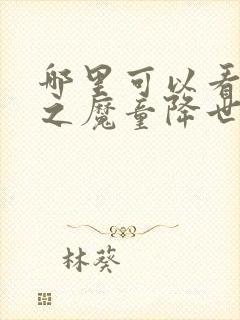 哪里可以看
之魔童降世
林葵